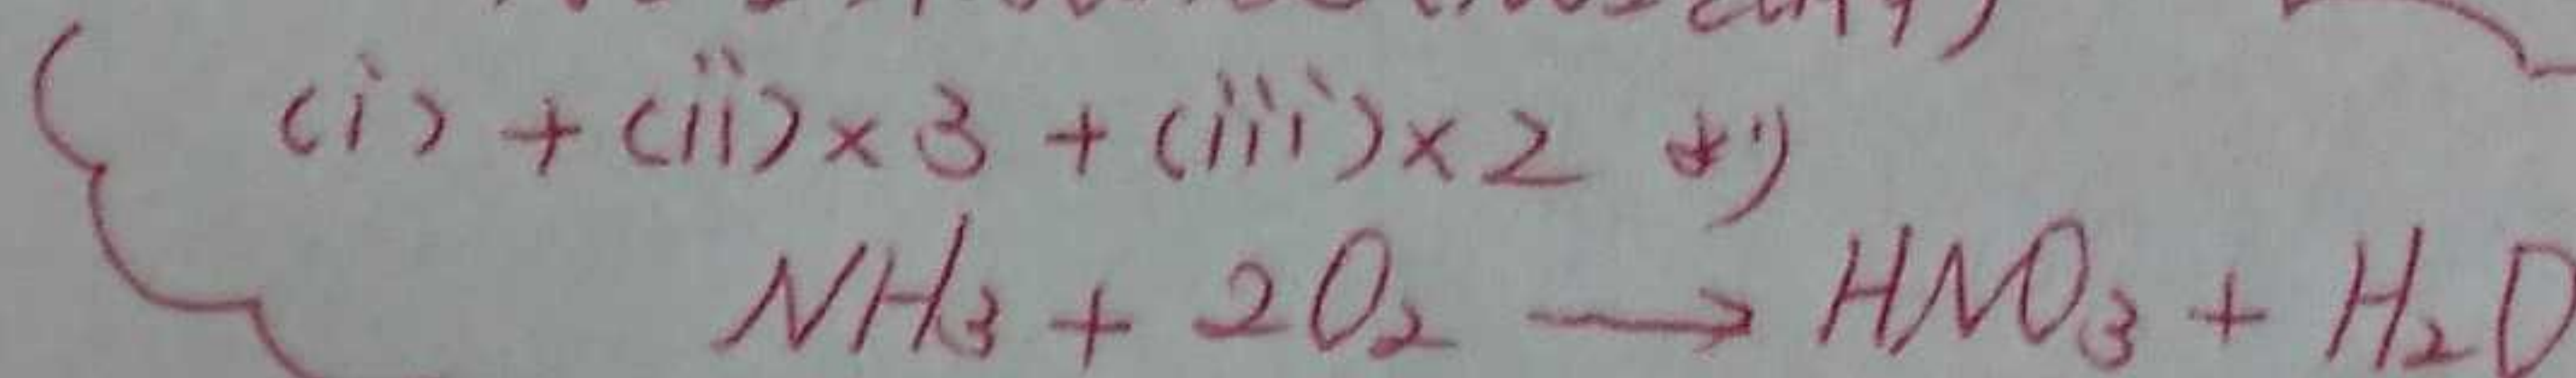 (i) + (ii) × 3 + (iii) × 2 より
NH₃ + 2O₂ → HNO₃ + H₂O